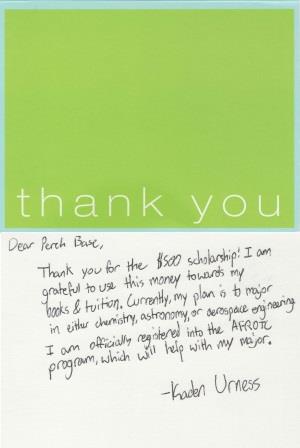 thank you
Dear Perch Base,
Thank you for the $500 scholarship! I am
grateful to use this money towards my
books & tuition. Currently, my plan is to major
in either chemistry, astronomy, or aerospace engineering.
I am officially registered into the AFROTC
program, which will help with my major.
-Kaden Urness